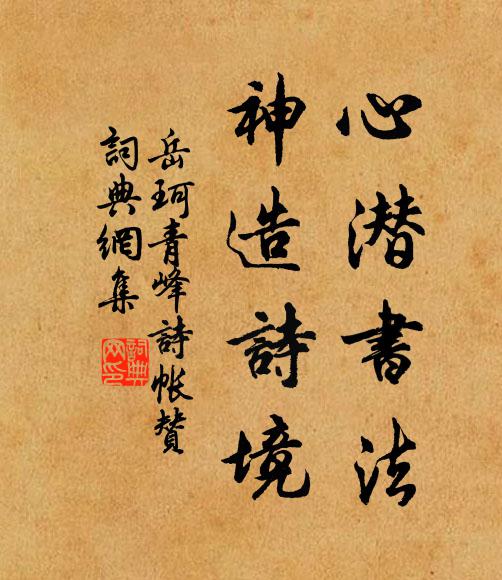 心潜書法
神造詩境
岳珂青峰詩帐贊
詞典網集
詞典网印